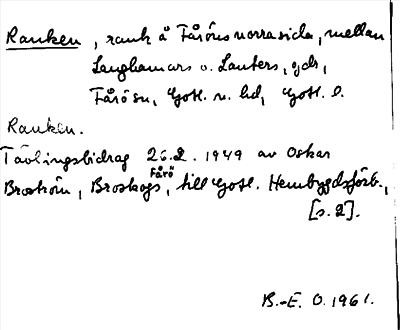 Ranken, rank å Fåröns norra sida, mellan
Langhamars o. Lauters, gdr,
Fårö sn, Gotl. n. hd, Gotl. l.
Ranken.
Tävlingsbidrag 26.2. 1949 av Oskar
Broström, Broskogs, Fårö, till Gotl. Hembygdsförb.,
[s. 2].
B.-E. O. 1961.